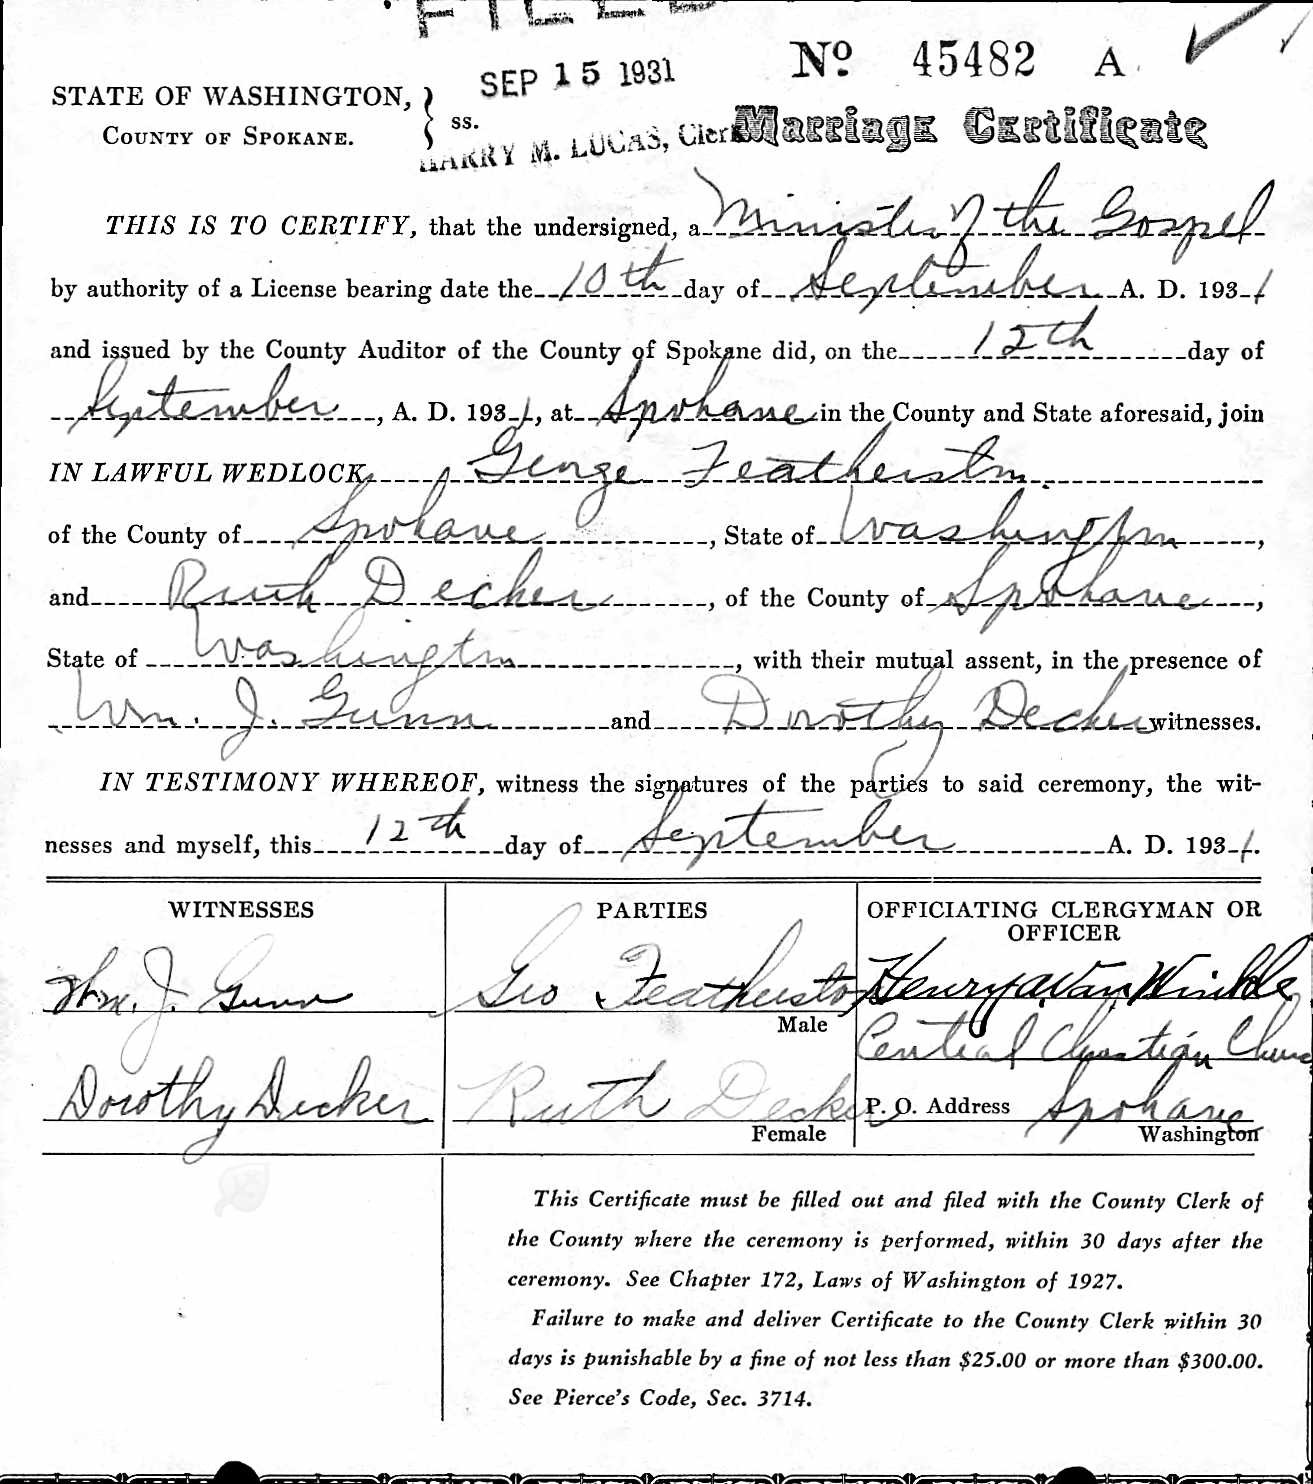 FILED
Nº 45482 A
SEP 15 1931
STATE OF WASHINGTON,
COUNTY OF SPOKANE.
ss.
HARRY M. LUCAS, Clerk
Marriage Certificate
THIS IS TO CERTIFY, that the undersigned, a Minister of the Gospel
by authority of a License bearing date the 10th day of September A. D. 1931
and issued by the County Auditor of the County of Spokane did, on the 12th day of
September, A. D. 1931, at Spokane in the County and State aforesaid, join
IN LAWFUL WEDLOCK, George Featherston.
of the County of Spokane, State of Washington,
and Ruth Decker, of the County of Spokane,
State of Washington, with their mutual assent, in the presence of
Wm. J. Gunn and Dorothy Decker witnesses.
IN TESTIMONY WHEREOF, witness the signatures of the parties to said ceremony, the wit-
nesses and myself, this 12th day of September A. D. 1931.
WITNESSES
Wm. J. Gunn
Dorothy Decker
PARTIES
Geo Featherston
Male
Ruth Decker
Female
OFFICIATING CLERGYMAN OR
OFFICER
Henry a. Van Winkle
Central Christian Church
P. O. Address Spokane
Washington
This Certificate must be filled out and filed with the County Clerk of
the County where the ceremony is performed, within 30 days after the
ceremony. See Chapter 172, Laws of Washington of 1927.
Failure to make and deliver Certificate to the County Clerk within 30
days is punishable by a fine of not less than $25.00 or more than $300.00.
See Pierce's Code, Sec. 3714.